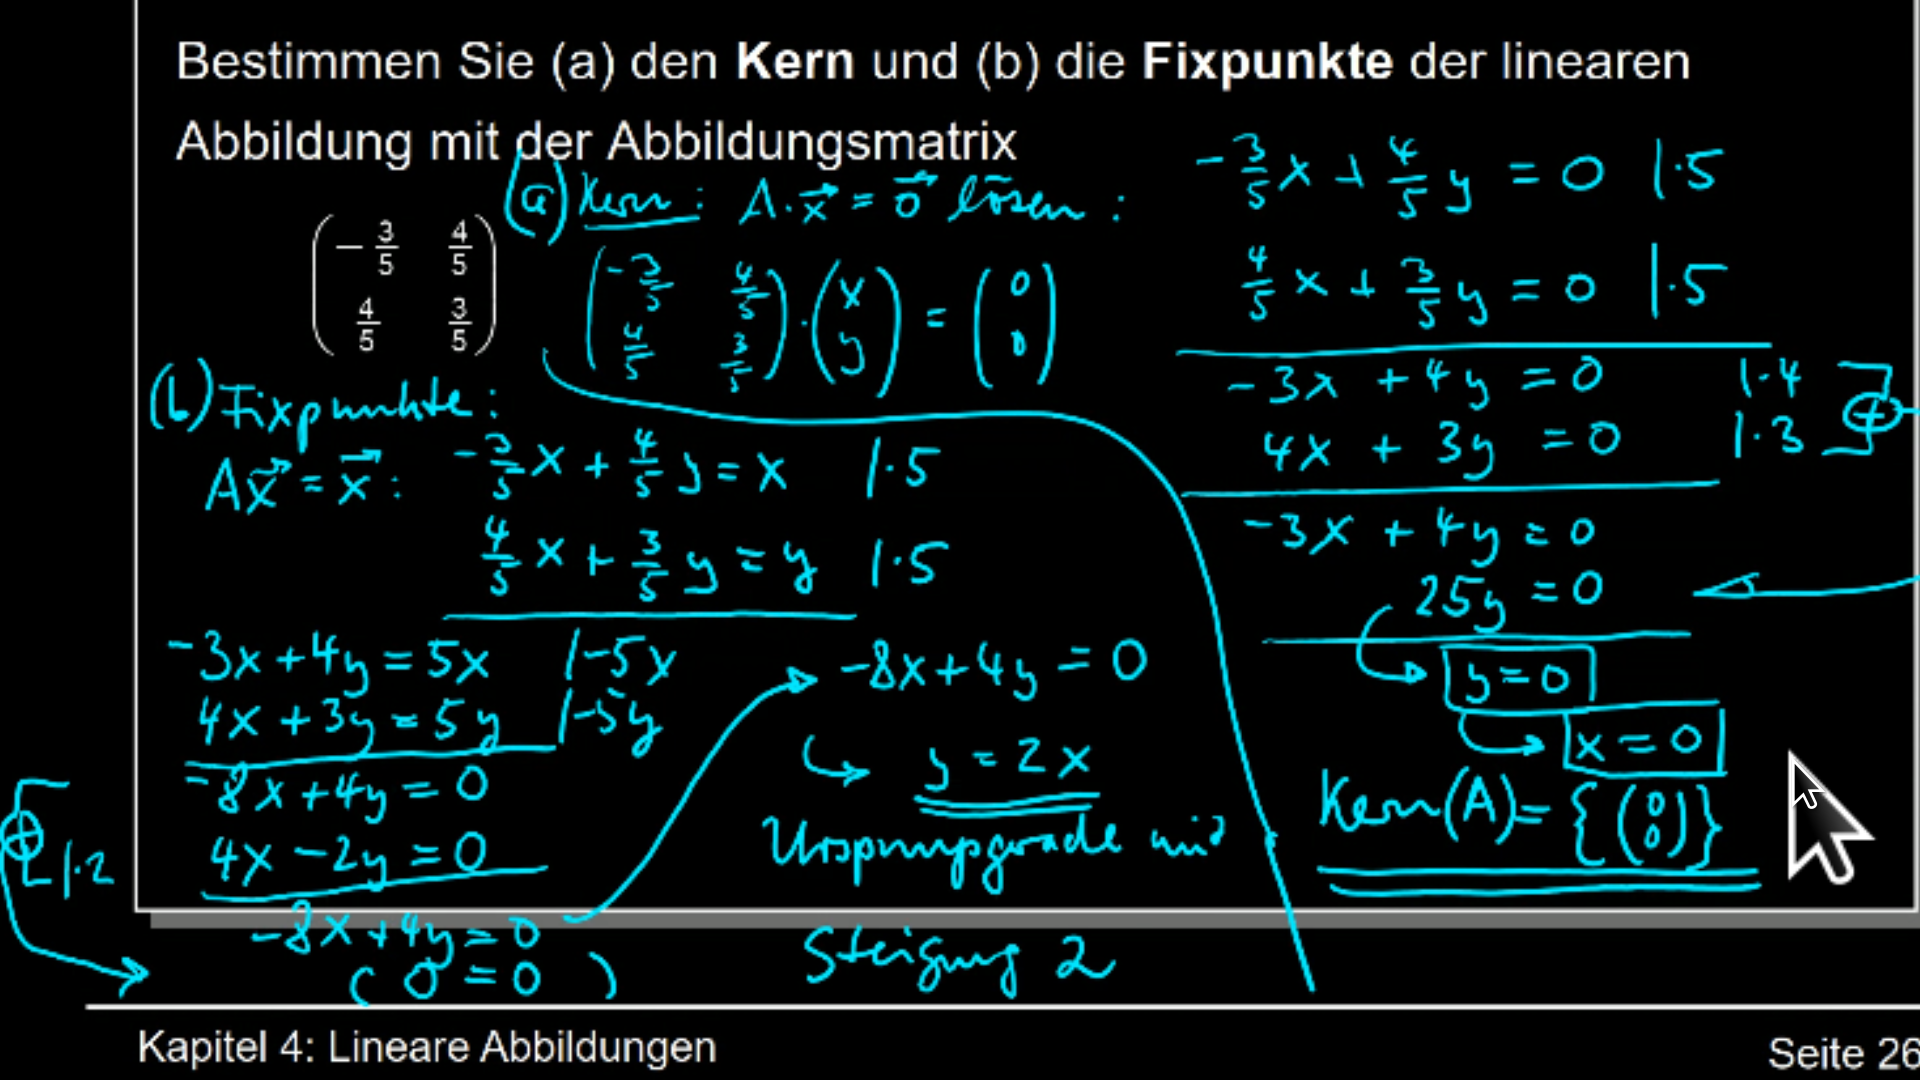 Bestimmen Sie (a) den Kern und (b) die Fixpunkte der linearen
Abbildung mit der Abbildungsmatrix
( -3/5 4/5 )
( 4/5 3/5 )
(a) Kern: A·x⃗ = 0⃗ lösen:
( -3/5 4/5 ) · ( x ) = ( 0 )
( 4/5 3/5 ) ( y ) ( 0 )
-3/5 x + 4/5 y = 0 |·5
4/5 x + 3/5 y = 0 |·5
-3x + 4y = 0 |·4
4x + 3y = 0 |·3
⊕
-3x + 4y = 0
25y = 0
y = 0
x = 0
Kern(A) = {(0 0)}
(b) Fixpunkte:
Ax⃗ = x⃗:
-3/5 x + 4/5 y = x |·5
4/5 x + 3/5 y = y |·5
-3x + 4y = 5x |-5x
4x + 3y = 5y |-5y
-8x + 4y = 0
4x - 2y = 0
⊕ |·2
-8x + 4y = 0
( 0 = 0 )
-8x + 4y = 0
y = 2x
Ursprungsgerade mit
Steigung 2
Kapitel 4: Lineare Abbildungen
Seite 26